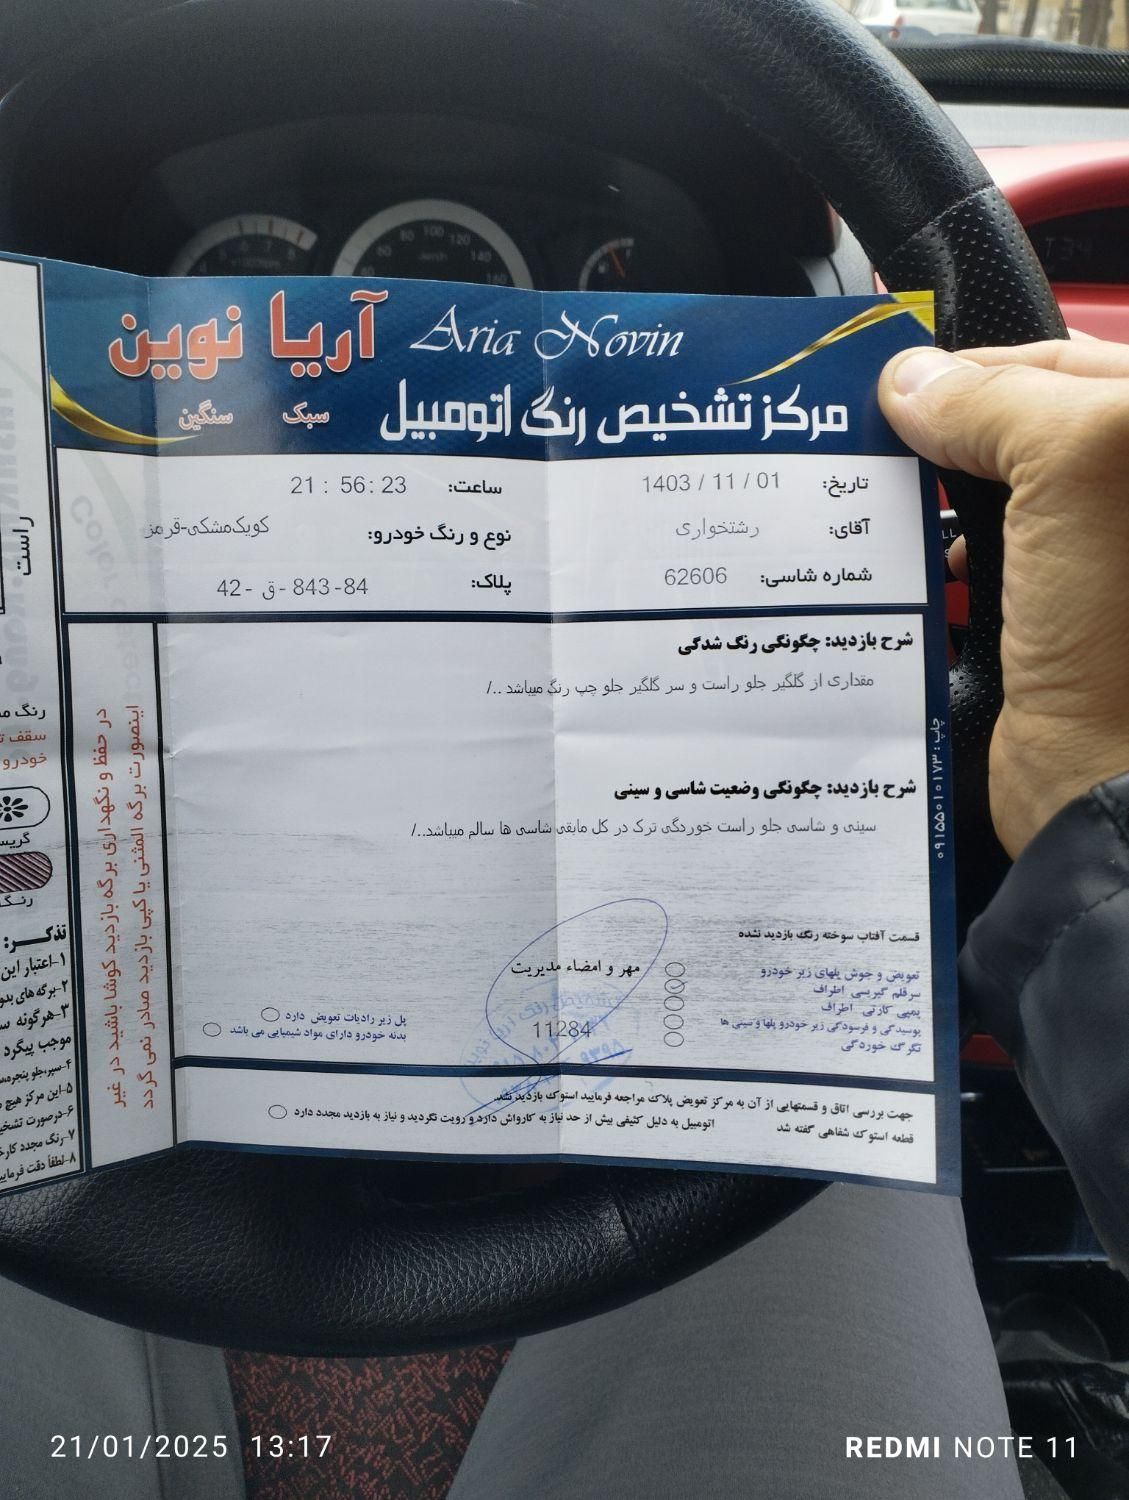 آریا نوین Aria Novin
سبک سنگین
مرکز تشخیص رنگ اتومبیل
تاریخ: 1403 / 11 / 01
ساعت: 21 : 56 : 23
آقای: رشتخواری
نوع و رنگ خودرو: کویک‌مشکی-قرمز
شماره شاسی: 62606
پلاک: 42 - ق - 843-84
شرح بازدید: چگونگی رنگ شدگی
مقداری از گلگیر جلو راست و سر گلگیر جلو چپ رنگ میباشد ../
شرح بازدید: چگونگی وضعیت شاسی و سینی
سینی و شاسی جلو راست خوردگی ترک در کل مابقی شاسی ها سالم میباشد../
قسمت آفتاب سوخته رنگ بازدید نشده
تعویض و جوش پلهای زیر خودرو
سرقلم گیریسی اطراف
پمپی کارتی اطراف
پوسیدگی و فرسودگی زیر خودرو پلها و سینی ها
تگرگ خوردگی
مهر و امضاء مدیریت
11284
پل زیر رادیات تعویض دارد
بدنه خودرو دارای مواد شیمیایی می باشد
جهت بررسی اتاق و قسمتهایی از آن به مرکز تعویض پلاک مراجعه فرمایید استوک بازدید نشد.
قطعه استوک شفاهی گفته شد
اتومبیل به دلیل کثیفی بیش از حد نیاز به کارواش دارد و رویت نگردید و نیاز به بازدید مجدد دارد
در حفظ و نگهداری برگه بازدید کوشا باشید در غیر
اینصورت برگه المثنی یا کپی بازدید صادر نمی گردد
چاپ: ۰۹۱۵۵۰۱۰۱۷۳
راست
سقف
خودرو
تذکر:
۱-اعتبار این
۲-برگه های بدو
۳-هرگونه
موجب پیگرد
۵-این مرکز هیچ
۶-درصورت
۷-رنگ مجدد
۸-لطفاً دقت
21/01/2025 13:17
REDMI NOTE 11